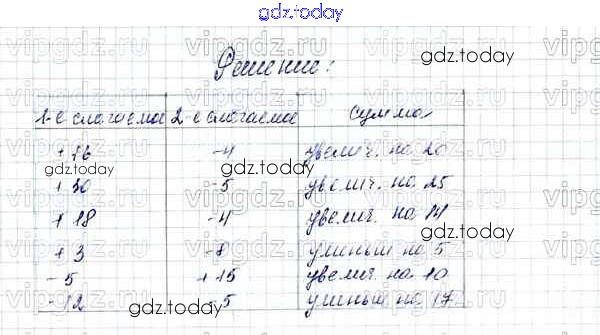 gdz.today
Решение:
1-е слагаемое 2-е слагаемое сумма
+16 -4 увелич. на 20
+30 -5 увелич. на 25
+18 -4 увелич. на 14
+3 -8 уменьш на 5
-5 +15 увелич. на 10
-12 -5 уменьш на 17
gdz.today
gdz.today
gdz.today
gdz.today
gdz.today
gdz.today